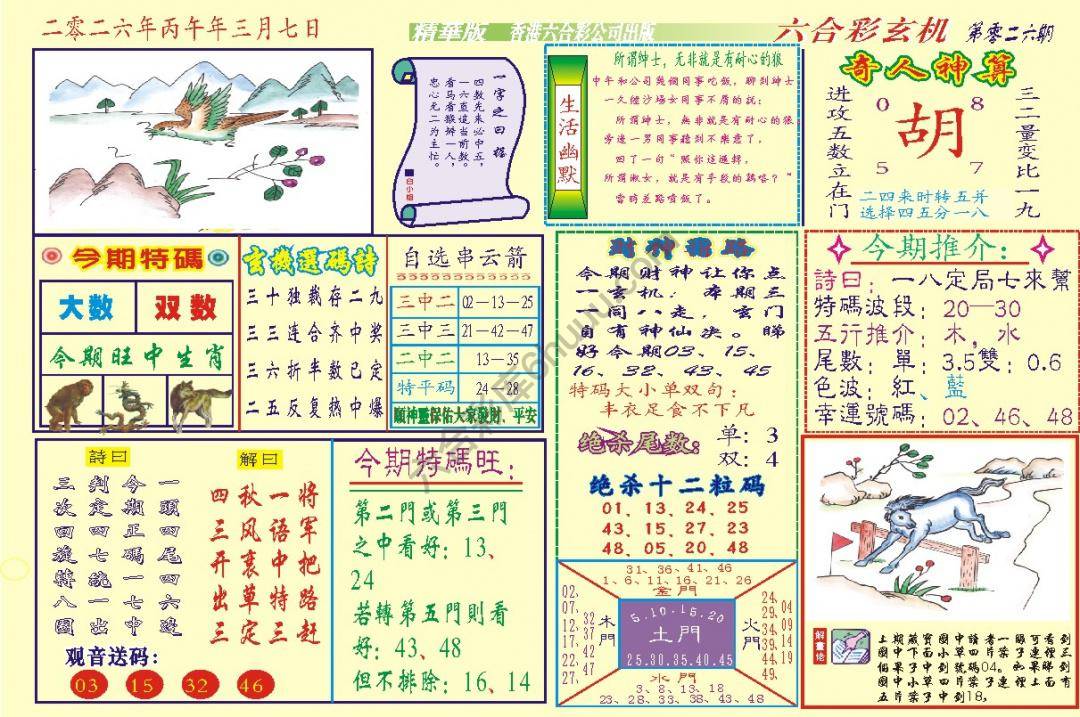 二零二六年丙午年三月七日
精華版 香港六合彩公司出版
六合彩玄机 第零二六期
一字之曰猛
四数先来必中五，
一六直追当前数。
看马看猴辨一人，
忠心无二为主忙。
白小姐
生活幽默
所谓绅士，无非就是有耐心的狼
中午和公司幾個同事吃饭，聊到绅士
一久經沙場女同事不屑的説：
所謂绅士，無非就是有耐心的狼
旁邊一男同事聽到不樂意了，
回了一句“照你這邏輯，
所謂淑女，就是有手段的鷄嘍？”
當時差點噴飯了。
奇人神算
进攻五数立在门
0 8
胡
5 7
三二量变比一九
二四来时转五并
选择四五分一八
今期特碼
大数 双数
今期旺中生肖
玄機選碼詩
三十独裁存二九
三三连合齐中奖
三六折半数已定
二五反复热中爆
自选串云箭
三中二 02—13—25
三中三 21—42—47
二中二 13—35
特平码 24—28
願神靈保佑大家發財、平安
财神指路
今期财神让你点
一玄机：本期三
一同八走，玄门
自有神仙决。睇
好今期03、15、
16、32、43、45
特码大小单双句：
丰衣足食不下凡
绝杀尾数：
单：3
双：4
绝杀十二粒码
01、13、24、25
43、15、27、23
48、05、20、48
今期推介：
詩曰：一八定局七來幫
特碼波段：20—30
五行推介：木，水
尾數：單：3.5雙：0.6
色波：紅、藍
幸運號碼：02、46、48
詩曰
一頭四尾四六邊
今期正碼一七中
判定四七統一出
三次回旋轉八圈
解曰
将军把路赶
一语中特三
秋风裏草定
四三开出三
观音送码：
03 15 32 46
今期特碼旺：
第二門或第三門
之中看好：13、
24
若轉第五門則看
好：43、48
但不排除：16、14
31、36、41、46
1、6、11、16、21、26
金門
02、07、12、17、22、27、
32、37、42、47
木門
5.10.15.20
土門
25.30.35.40.45
火門
24、29、34、39、44、49
04、09、14、19
水門
3、8、13、18
23、28、33、38、43、48
解畫佬
上期藏寳圖中請者一睇可看到
圖中下面小草四片葉子連徑三
個果子中到號碼04。如果睇到
圖中小草四片葉子連徑上面有
五片葉子中到18，